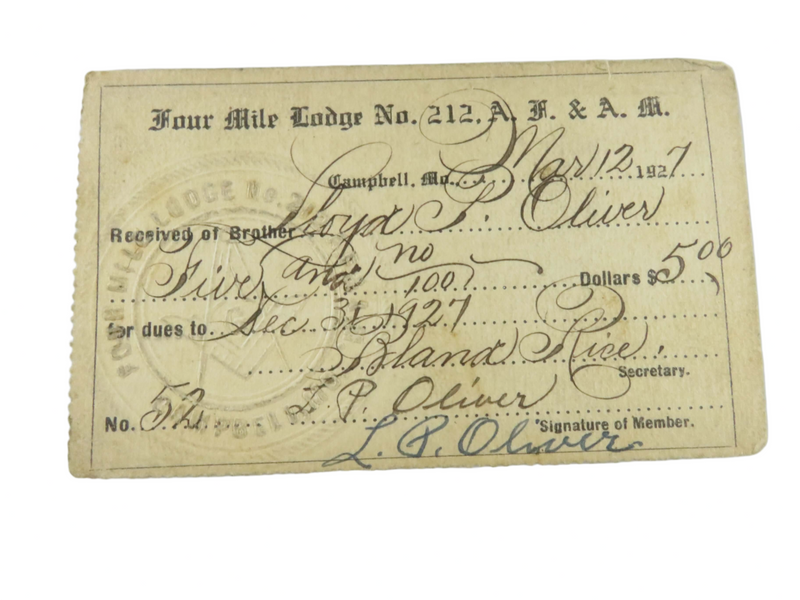 Four Mile Lodge No. 212, A. F. & A. M.
Campbell, Mo., Mar 12 1927
Received of Brother Lloyd P. Oliver
Five and no/100 Dollars $5.00
for dues to Dec 31 1927
Bland Rice.
Secretary.
No. 52 L. P. Oliver
Signature of Member.
L. P. Oliver
FOUR MILE LODGE No. 2